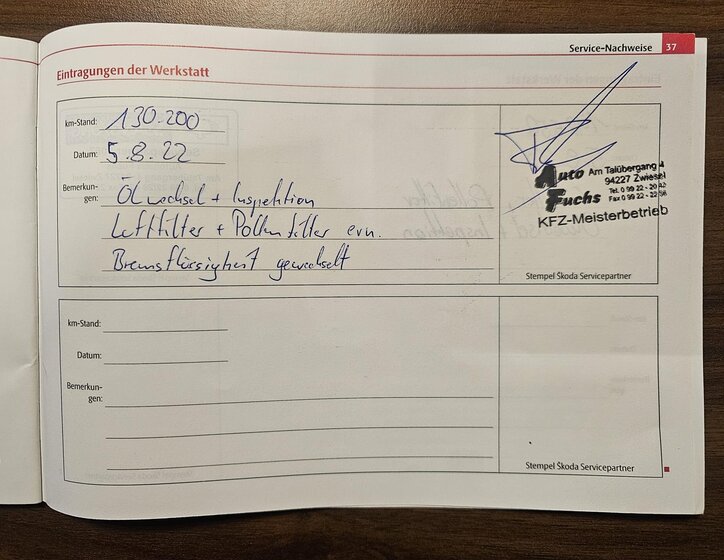 Service-Nachweise 37
Eintragungen der Werkstatt
km-Stand: 130.200
Datum: 5.8.22
Bemerkun-
gen: Ölwechsel + Inspektion
Luftfilter + Pollenfilter ern.
Bremsflüssigkeit gewechselt
Auto Fuchs
Am Talübergang 4
94227 Zwiesel
KFZ-Meisterbetrieb
Stempel Škoda Servicepartner
km-Stand:
Datum:
Bemerkun-
gen:
Stempel Škoda Servicepartner